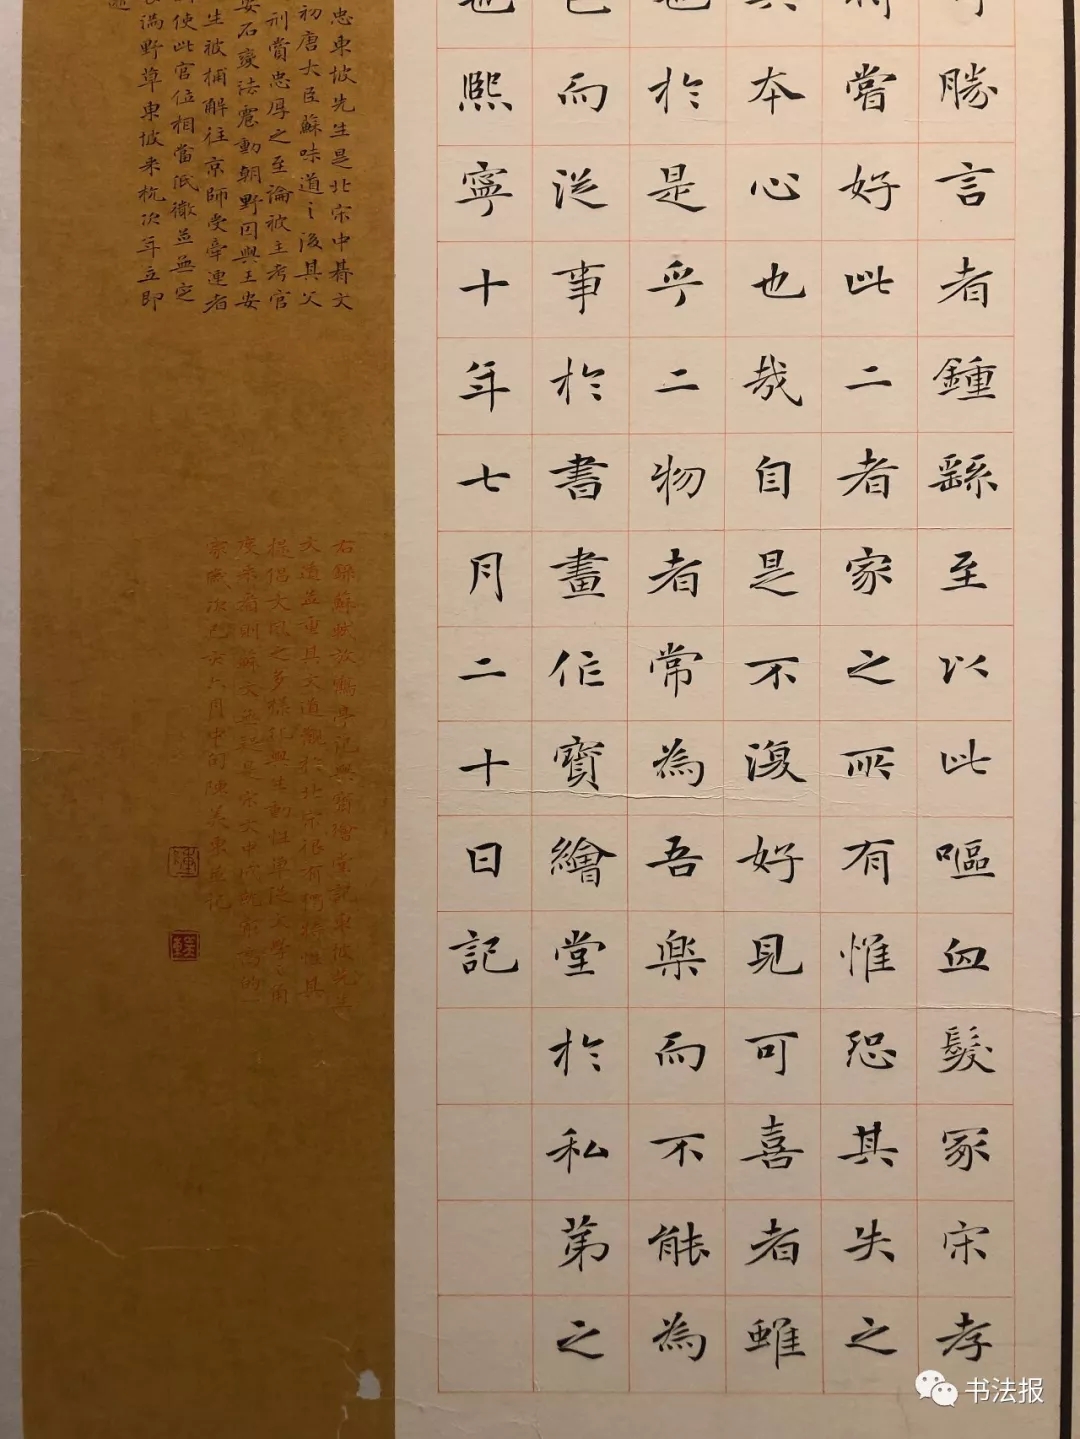 勝言者鍾繇至以此嘔血發冢宋孝
嘗好此二者家之所有惟恐其失之
本心也哉自是不復好見可喜者雖
於是乎二物者常為吾樂而不能為
而從事於書畫作寶繪堂於私第之
熙寧十年七月二十日記
忠東坡先生是北宋中期文
初唐大臣蘇味道之後其父
刑賞忠厚之至論被主考官
安石變法震動朝野因與王安
生被捕解往京師受牽連者
使此官位相當低微並無定
滿野草東坡來杭次年立即
右錄蘇軾放鶴亭記與寶繪堂記東坡先生
文道並重其文道觀於北宋很有獨特性具
提倡文風之多樣化與生動性單從文學角
度來看則蘇文無疑是宋文中成就最高的一
家歲次己亥六月中旬陳美東並記
书法报